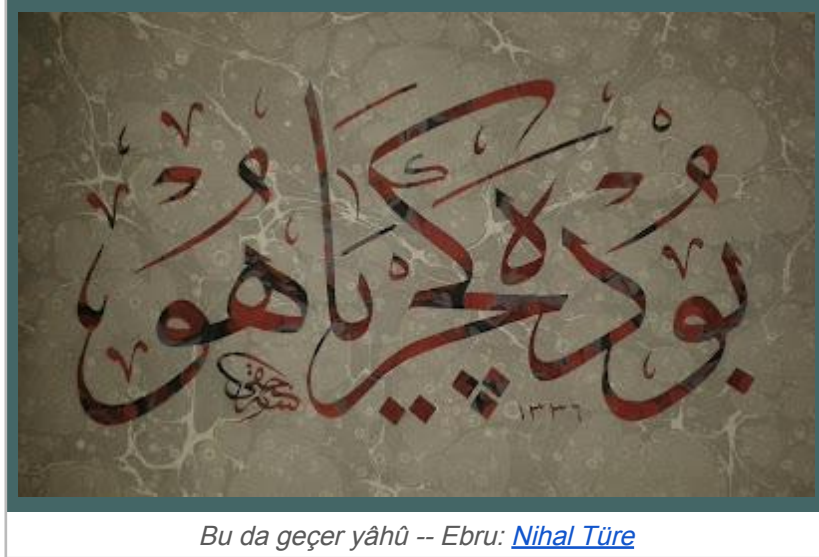 بو ده كچر یا هو
١٣٣٦
Bu da geçer yâhû -- Ebru: Nihal Türe